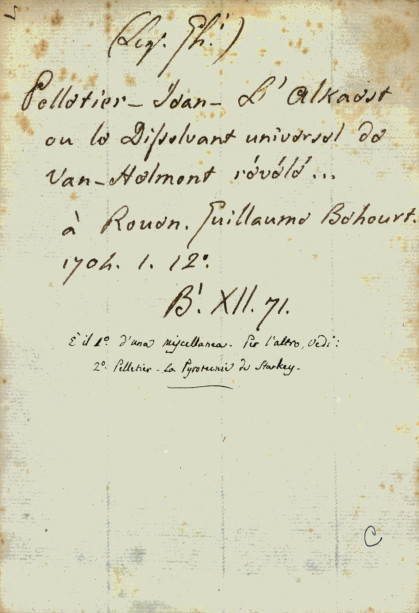 (Leg. Gh.)
Pelletier - Jean - L'Alkaest
ou le Dissolvant universel de
Van-Helmont révélé...
à Rouen. Guillaume Behourt.
1704. 1. 12°.
B. XII. 71.
È il 1° d'una miscellanea. Per l'altro, vedi:
2° Pelletier - La Pyrotecnie de Starkey.
C